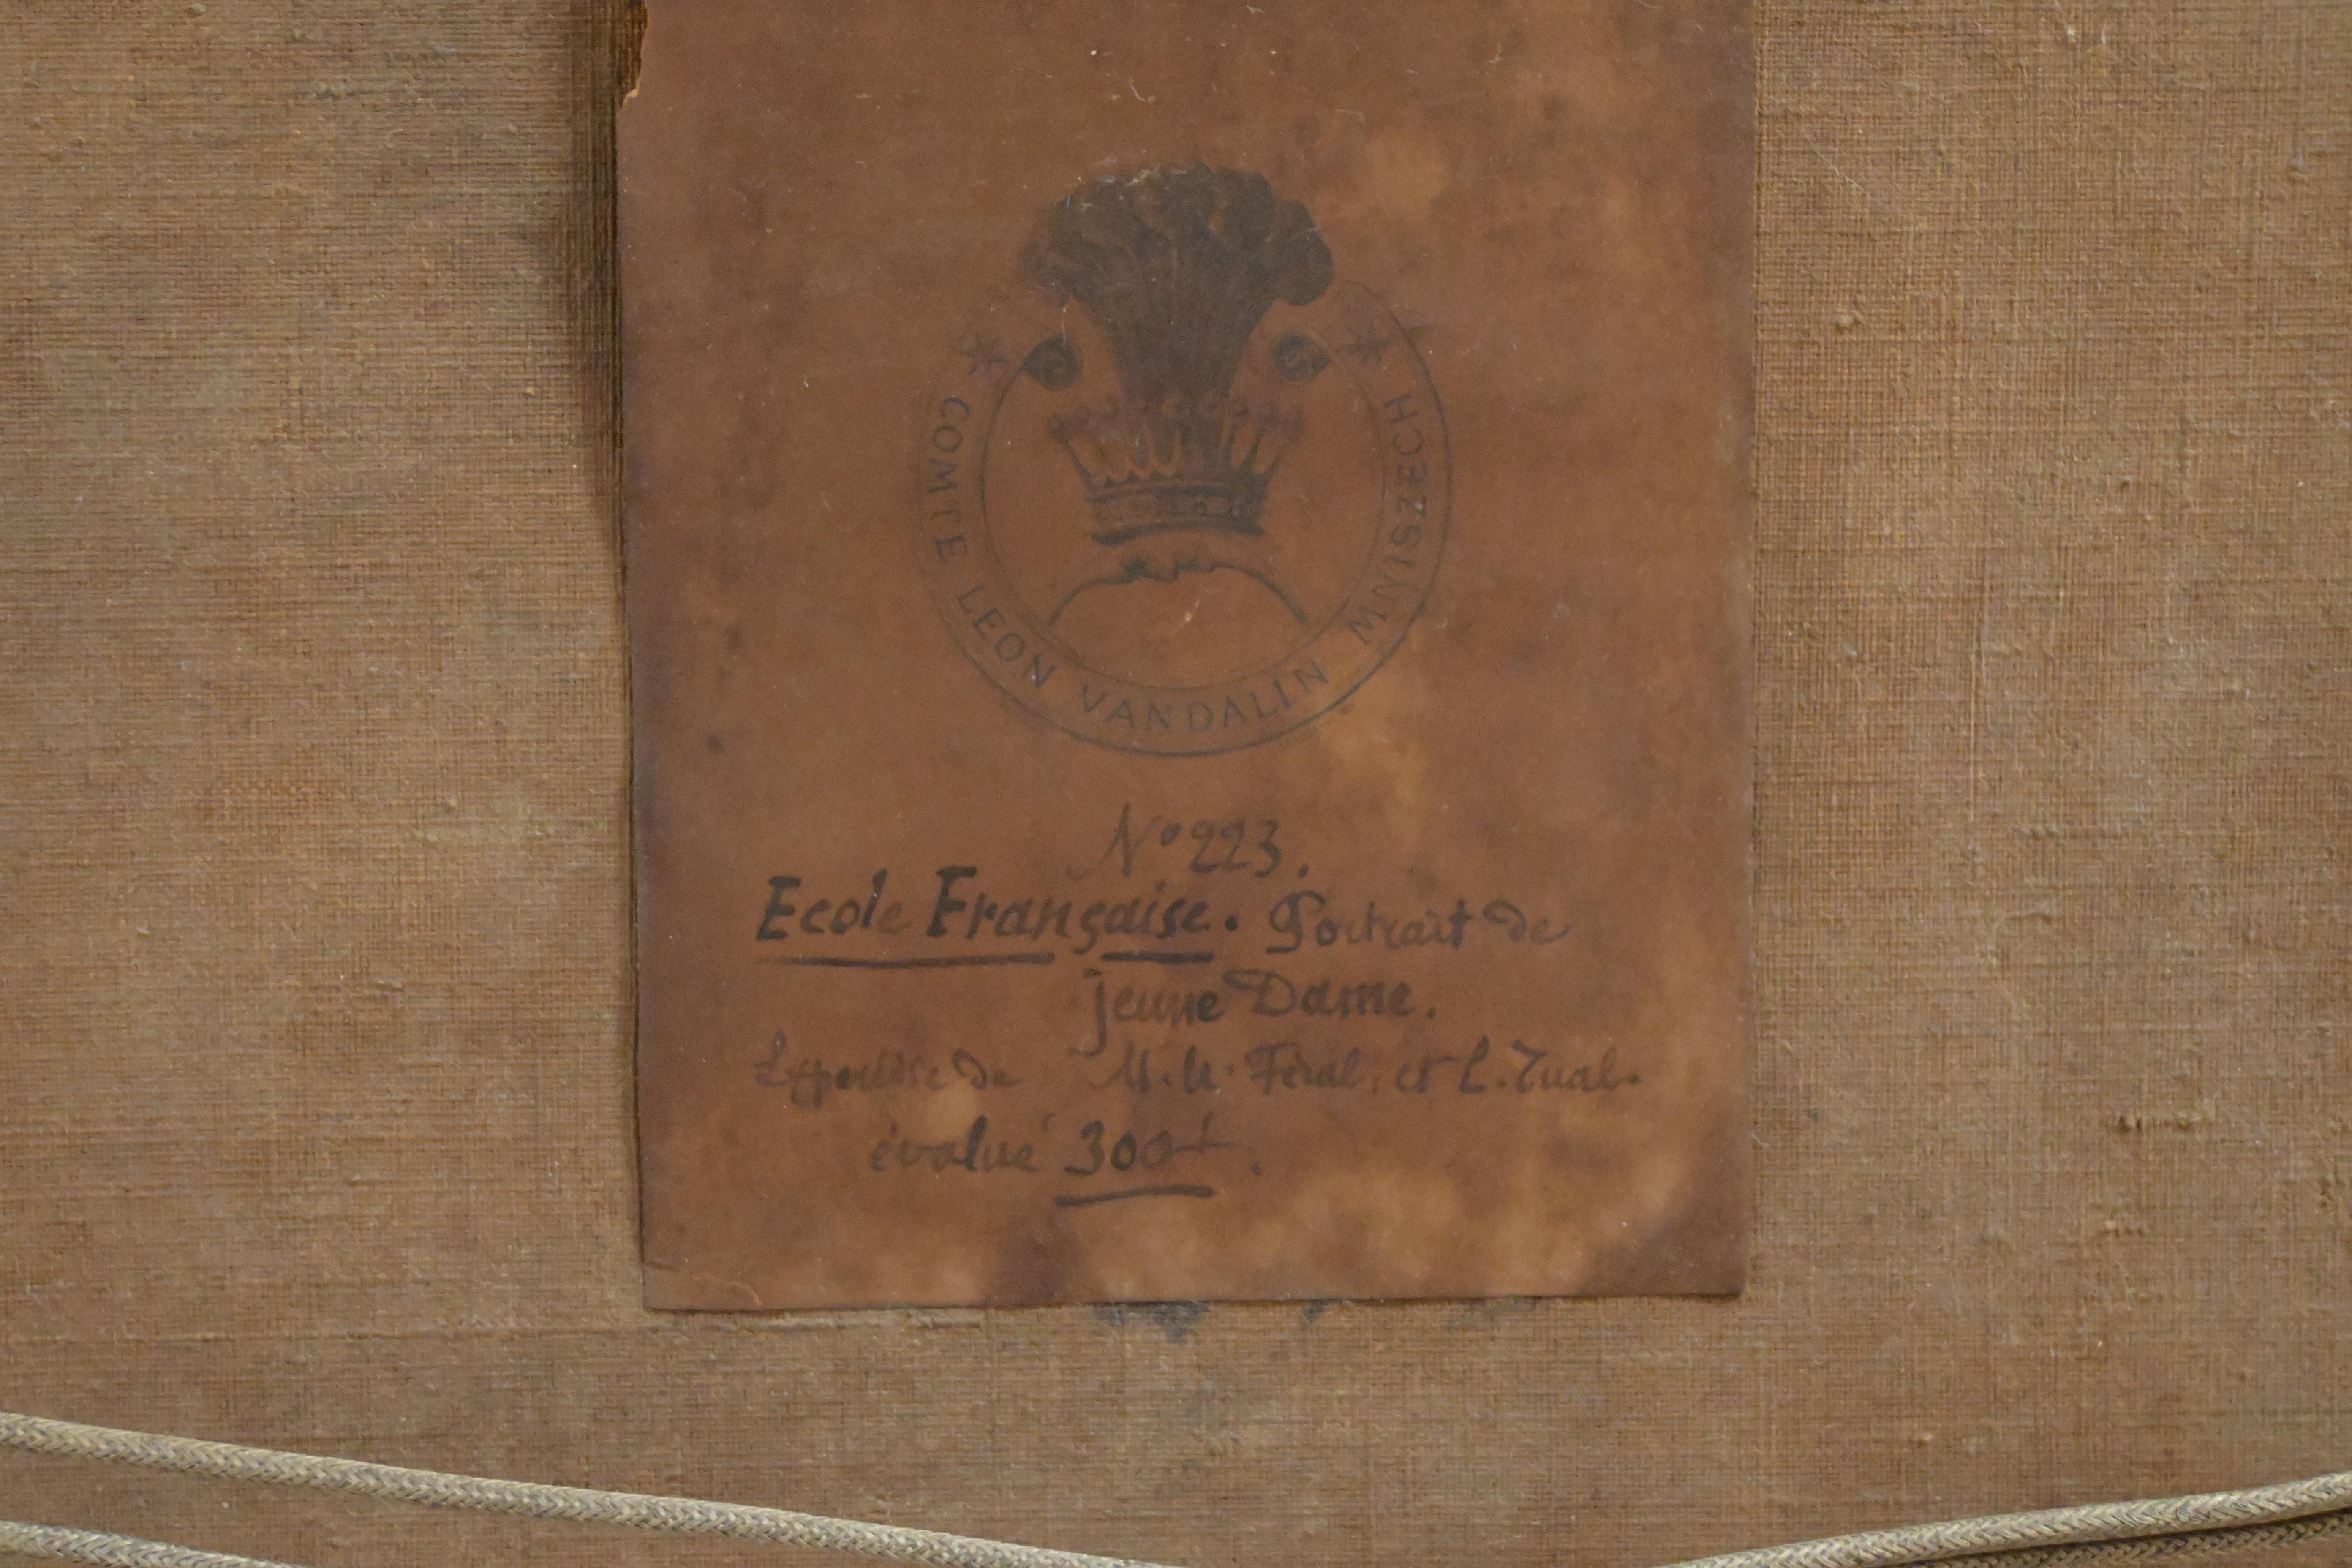 COMTE LEON VANDALIN MNISZECH
N° 223.
Ecole Française. Portrait de
jeune Dame.
Expertise de M. Féral, et C. Tual.
évalué 300 f.